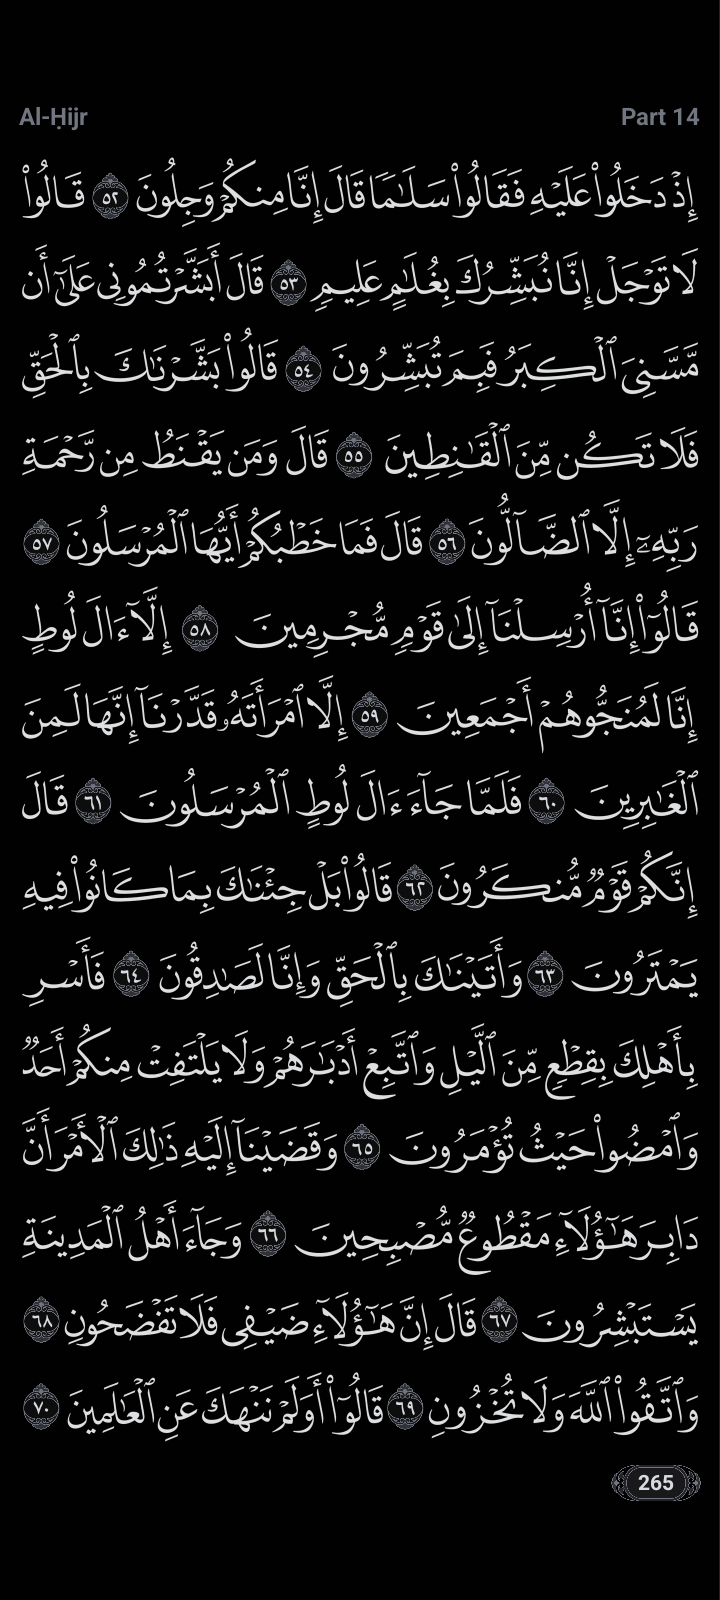 Al-Ḥijr
Part 14
إِذۡ دَخَلُواْ عَلَيۡهِ فَقَالُواْ سَلَٰمٗا قَالَ إِنَّا مِنكُمۡ وَجِلُونَ ٥٢ قَالُواْ
لَا تَوۡجَلۡ إِنَّا نُبَشِّرُكَ بِغُلَٰمٍ عَلِيمٖ ٥٣ قَالَ أَبَشَّرۡتُمُونِي عَلَىٰٓ أَن
مَّسَّنِيَ ٱلۡكِبَرُ فَبِمَ تُبَشِّرُونَ ٥٤ قَالُواْ بَشَّرۡنَٰكَ بِٱلۡحَقِّ
فَلَا تَكُن مِّنَ ٱلۡقَٰنِطِينَ ٥٥ قَالَ وَمَن يَقۡنَطُ مِن رَّحۡمَةِ
رَبِّهِۦٓ إِلَّا ٱلضَّآلُّونَ ٥٦ قَالَ فَمَا خَطۡبُكُمۡ أَيُّهَا ٱلۡمُرۡسَلُونَ ٥٧
قَالُوٓاْ إِنَّآ أُرۡسِلۡنَآ إِلَىٰ قَوۡمٖ مُّجۡرِمِينَ ٥٨ إِلَّآ ءَالَ لُوطٍ
إِنَّا لَمُنَجُّوهُمۡ أَجۡمَعِينَ ٥٩ إِلَّا ٱمۡرَأَتَهُۥ قَدَّرۡنَآ إِنَّهَا لَمِنَ
ٱلۡغَٰبِرِينَ ٦٠ فَلَمَّا جَآءَ ءَالَ لُوطٍ ٱلۡمُرۡسَلُونَ ٦١ قَالَ
إِنَّكُمۡ قَوۡمٞ مُّنكَرُونَ ٦٢ قَالُواْ بَلۡ جِئۡنَٰكَ بِمَا كَانُواْ فِيهِ
يَمۡتَرُونَ ٦٣ وَأَتَيۡنَٰكَ بِٱلۡحَقِّ وَإِنَّا لَصَٰدِقُونَ ٦٤ فَأَسۡرِ
بِأَهۡلِكَ بِقِطۡعٖ مِّنَ ٱلَّيۡلِ وَٱتَّبِعۡ أَدۡبَٰرَهُمۡ وَلَا يَلۡتَفِتۡ مِنكُمۡ أَحَدٞ
وَٱمۡضُواْ حَيۡثُ تُؤۡمَرُونَ ٦٥ وَقَضَيۡنَآ إِلَيۡهِ ذَٰلِكَ ٱلۡأَمۡرَ أَنَّ
دَابِرَ هَٰٓؤُلَآءِ مَقۡطُوعٞ مُّصۡبِحِينَ ٦٦ وَجَآءَ أَهۡلُ ٱلۡمَدِينَةِ
يَسۡتَبۡشِرُونَ ٦٧ قَالَ إِنَّ هَٰٓؤُلَآءِ ضَيۡفِي فَلَا تَفۡضَحُونِ ٦٨
وَٱتَّقُواْ ٱللَّهَ وَلَا تُخۡزُونِ ٦٩ قَالُوٓاْ أَوَلَمۡ نَنۡهَكَ عَنِ ٱلۡعَٰلَمِينَ ٧٠
265